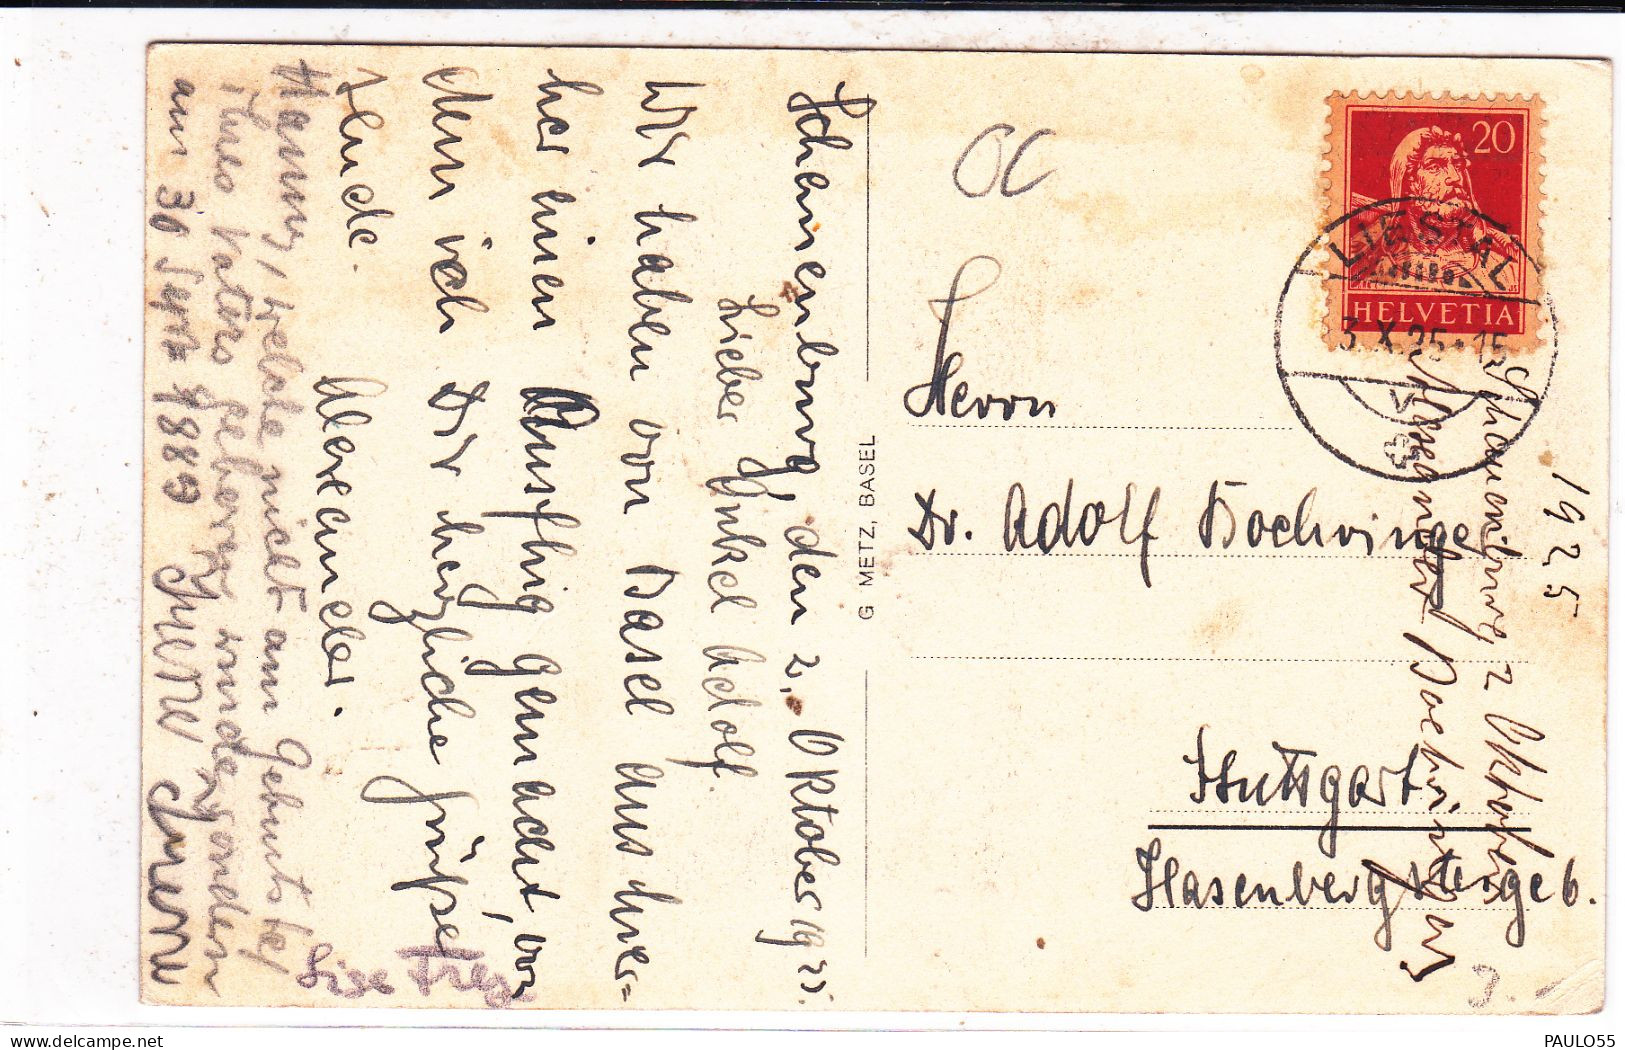 Schauenburg, den 2. Oktober 1925.
Lieber Onkel Adolf.
Wir haben von Basel aus hier=
her einen Ausflug gemacht, von
dem ich Dir herzliche Grüsse
sende.
Alexander.
Hanny, welche nicht am Geburtstag
ihres Vaters geboren worden
am 30 Sept 1889
Lise
G. METZ, BASEL
20
HELVETIA
LIESTAL
3.X.25.15
Herrn
Dr. Adolf Bochringer
Stuttgart
Hasenbergsteige 6.
Schauenburg, 2 Oktober
1925
Alexander Boehringer
PAULO55